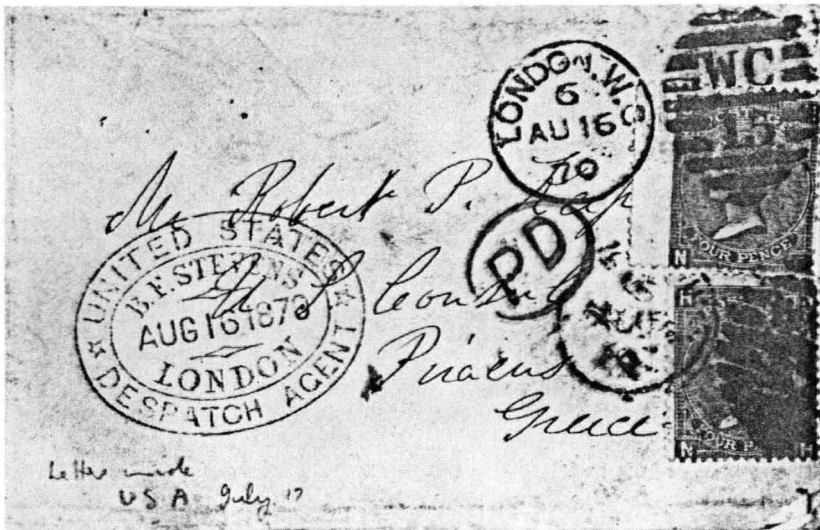 LONDON.W.C
6
AU 16
70
WC
15
FOUR PENCE
N
Mr Robert P. Keep
UNITED STATES
B.F. STEVENS
AUG 16 1870
LONDON
DESPATCH AGENT
PD
U.S. Consul
Piraeus
Greece
H H
FOUR P
N H
Letter inside
USA July 17